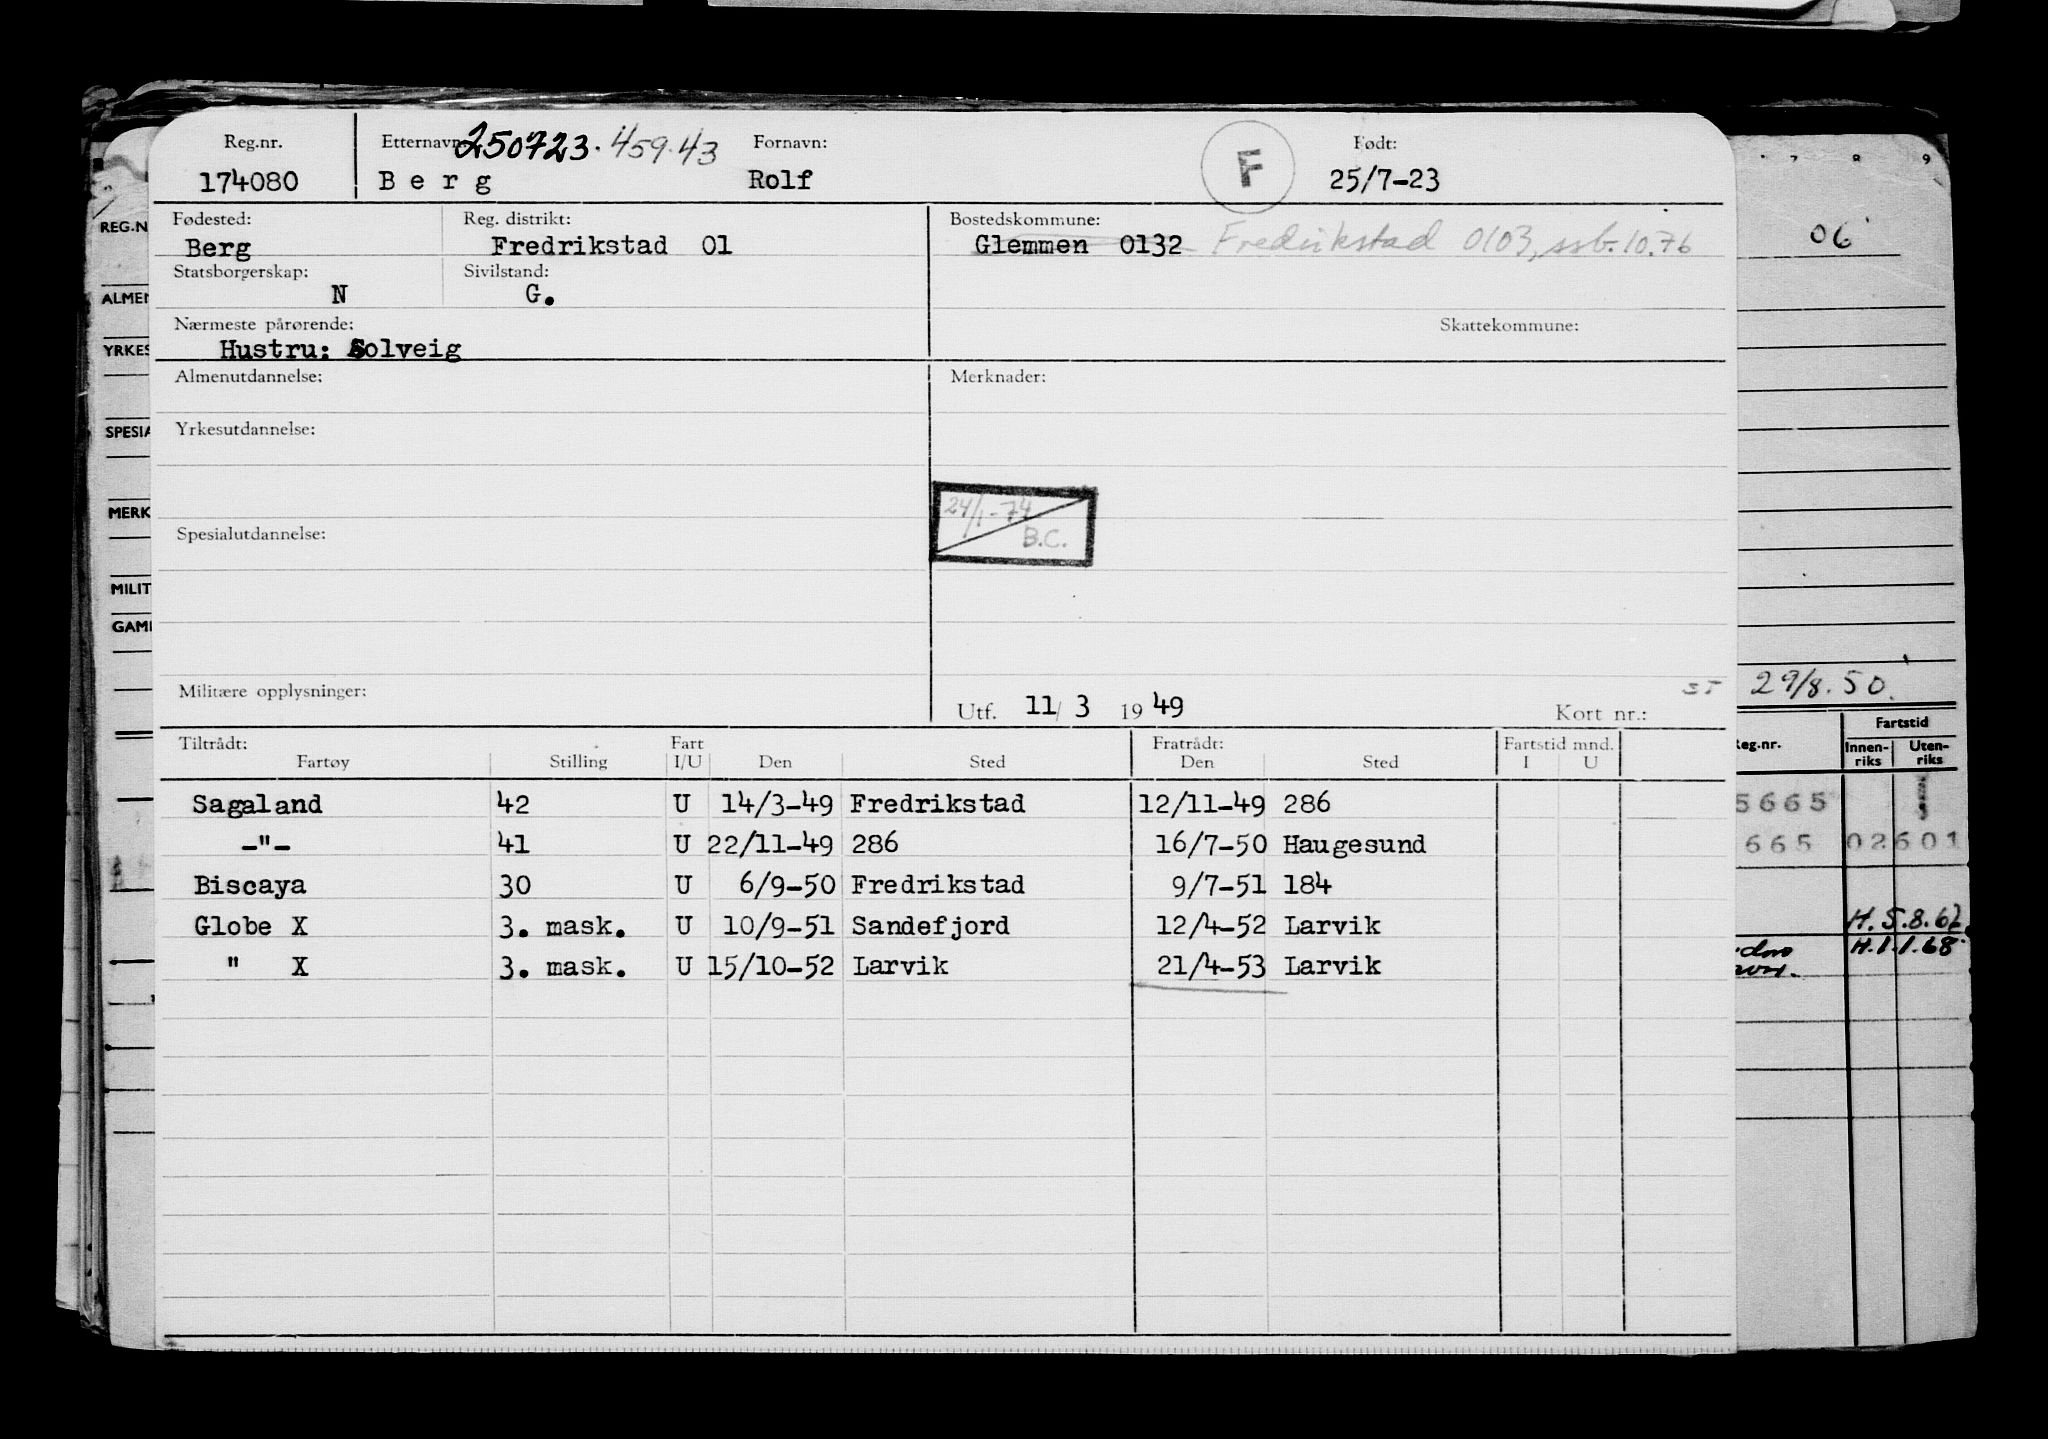 Reg.nr. Etternavn: 250723. 45943 Fornavn: F Født:
174080 Berg Rolf 25/7-23
Fødested: Reg. distrikt: Bostedskommune:
Berg Fredrikstad 01 Glemmen 0132 Fredrikstad 0103, ssb. 10.76
Statsborgerskap: Sivilstand:
N G.
Nærmeste pårørende: Skattekommune:
Hustru: Solveig
Almenutdannelse: Merknader:
Yrkesutdannelse:
24/1-74
B.C.
Spesialutdannelse:
Militære opplysninger:
Utf. 11/ 3 19 49 Kort nr.:
Tiltrådt: Fart Fratrådt: Fartstid mnd.
Fartøy Stilling I/U Den Sted Den Sted I U
Sagaland 42 U 14/3-49 Fredrikstad 12/11-49 286
-"- 41 U 22/11-49 286 16/7-50 Haugesund
Biscaya 30 U 6/9-50 Fredrikstad 9/7-51 184
Globe X 3. mask. U 10/9-51 Sandefjord 12/4-52 Larvik
" X 3. mask. U 15/10-52 Larvik 21/4-53 Larvik
REG.N
ALMEN
YRKES
SPESIA
MERK
MILIT
GAML
7 8 9
06
29/8.50.
Reg.nr. Fartstid
Innen-riks Uten-riks
5665
665 02601
H. 5.8.62
H.1.1.68